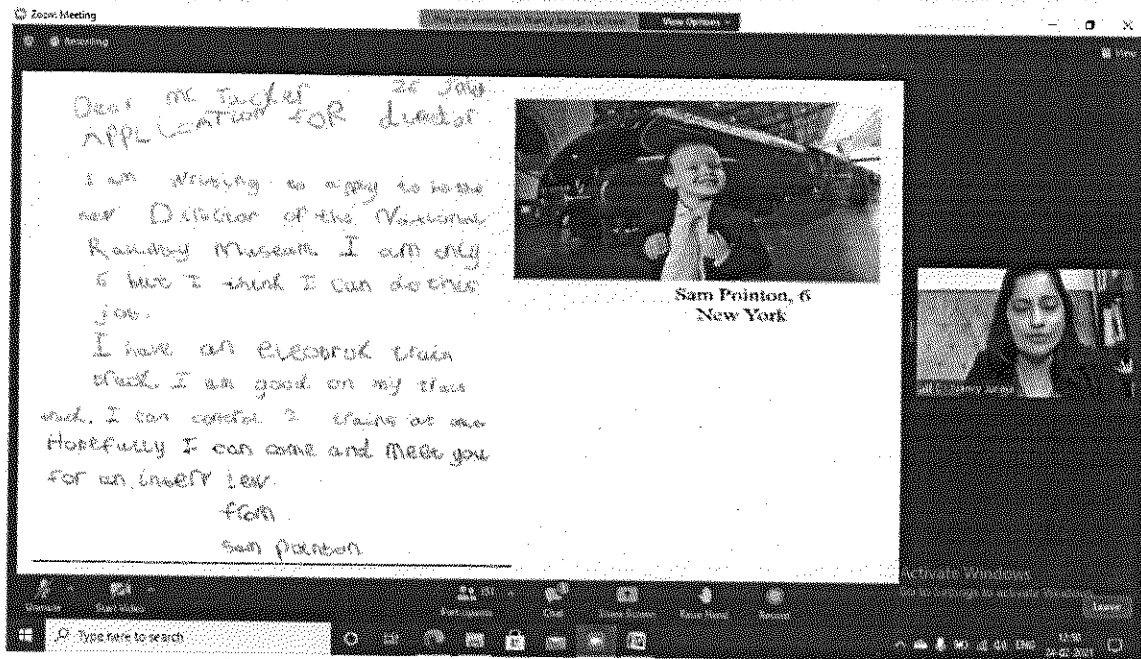 Zoom Meeting
View Options
Recording
View
Dear mr Tucker 26 July
APPLICATION FOR director
I am writing to apply to be the
new Director of the National
Railway Museum. I am only
6 but I think I can do this
job.
I have an electruk train
track. I am good on my train
track. I can control 2 trains at once
Hopefully I can come and meet you
for an interview.
from
sam pointon
Sam Pointon, 6
New York
Activate Windows
Unmute Start Video Participants Chat Share Screen Raise Hand Record Leave
Type here to search
ENG
24-02-2021